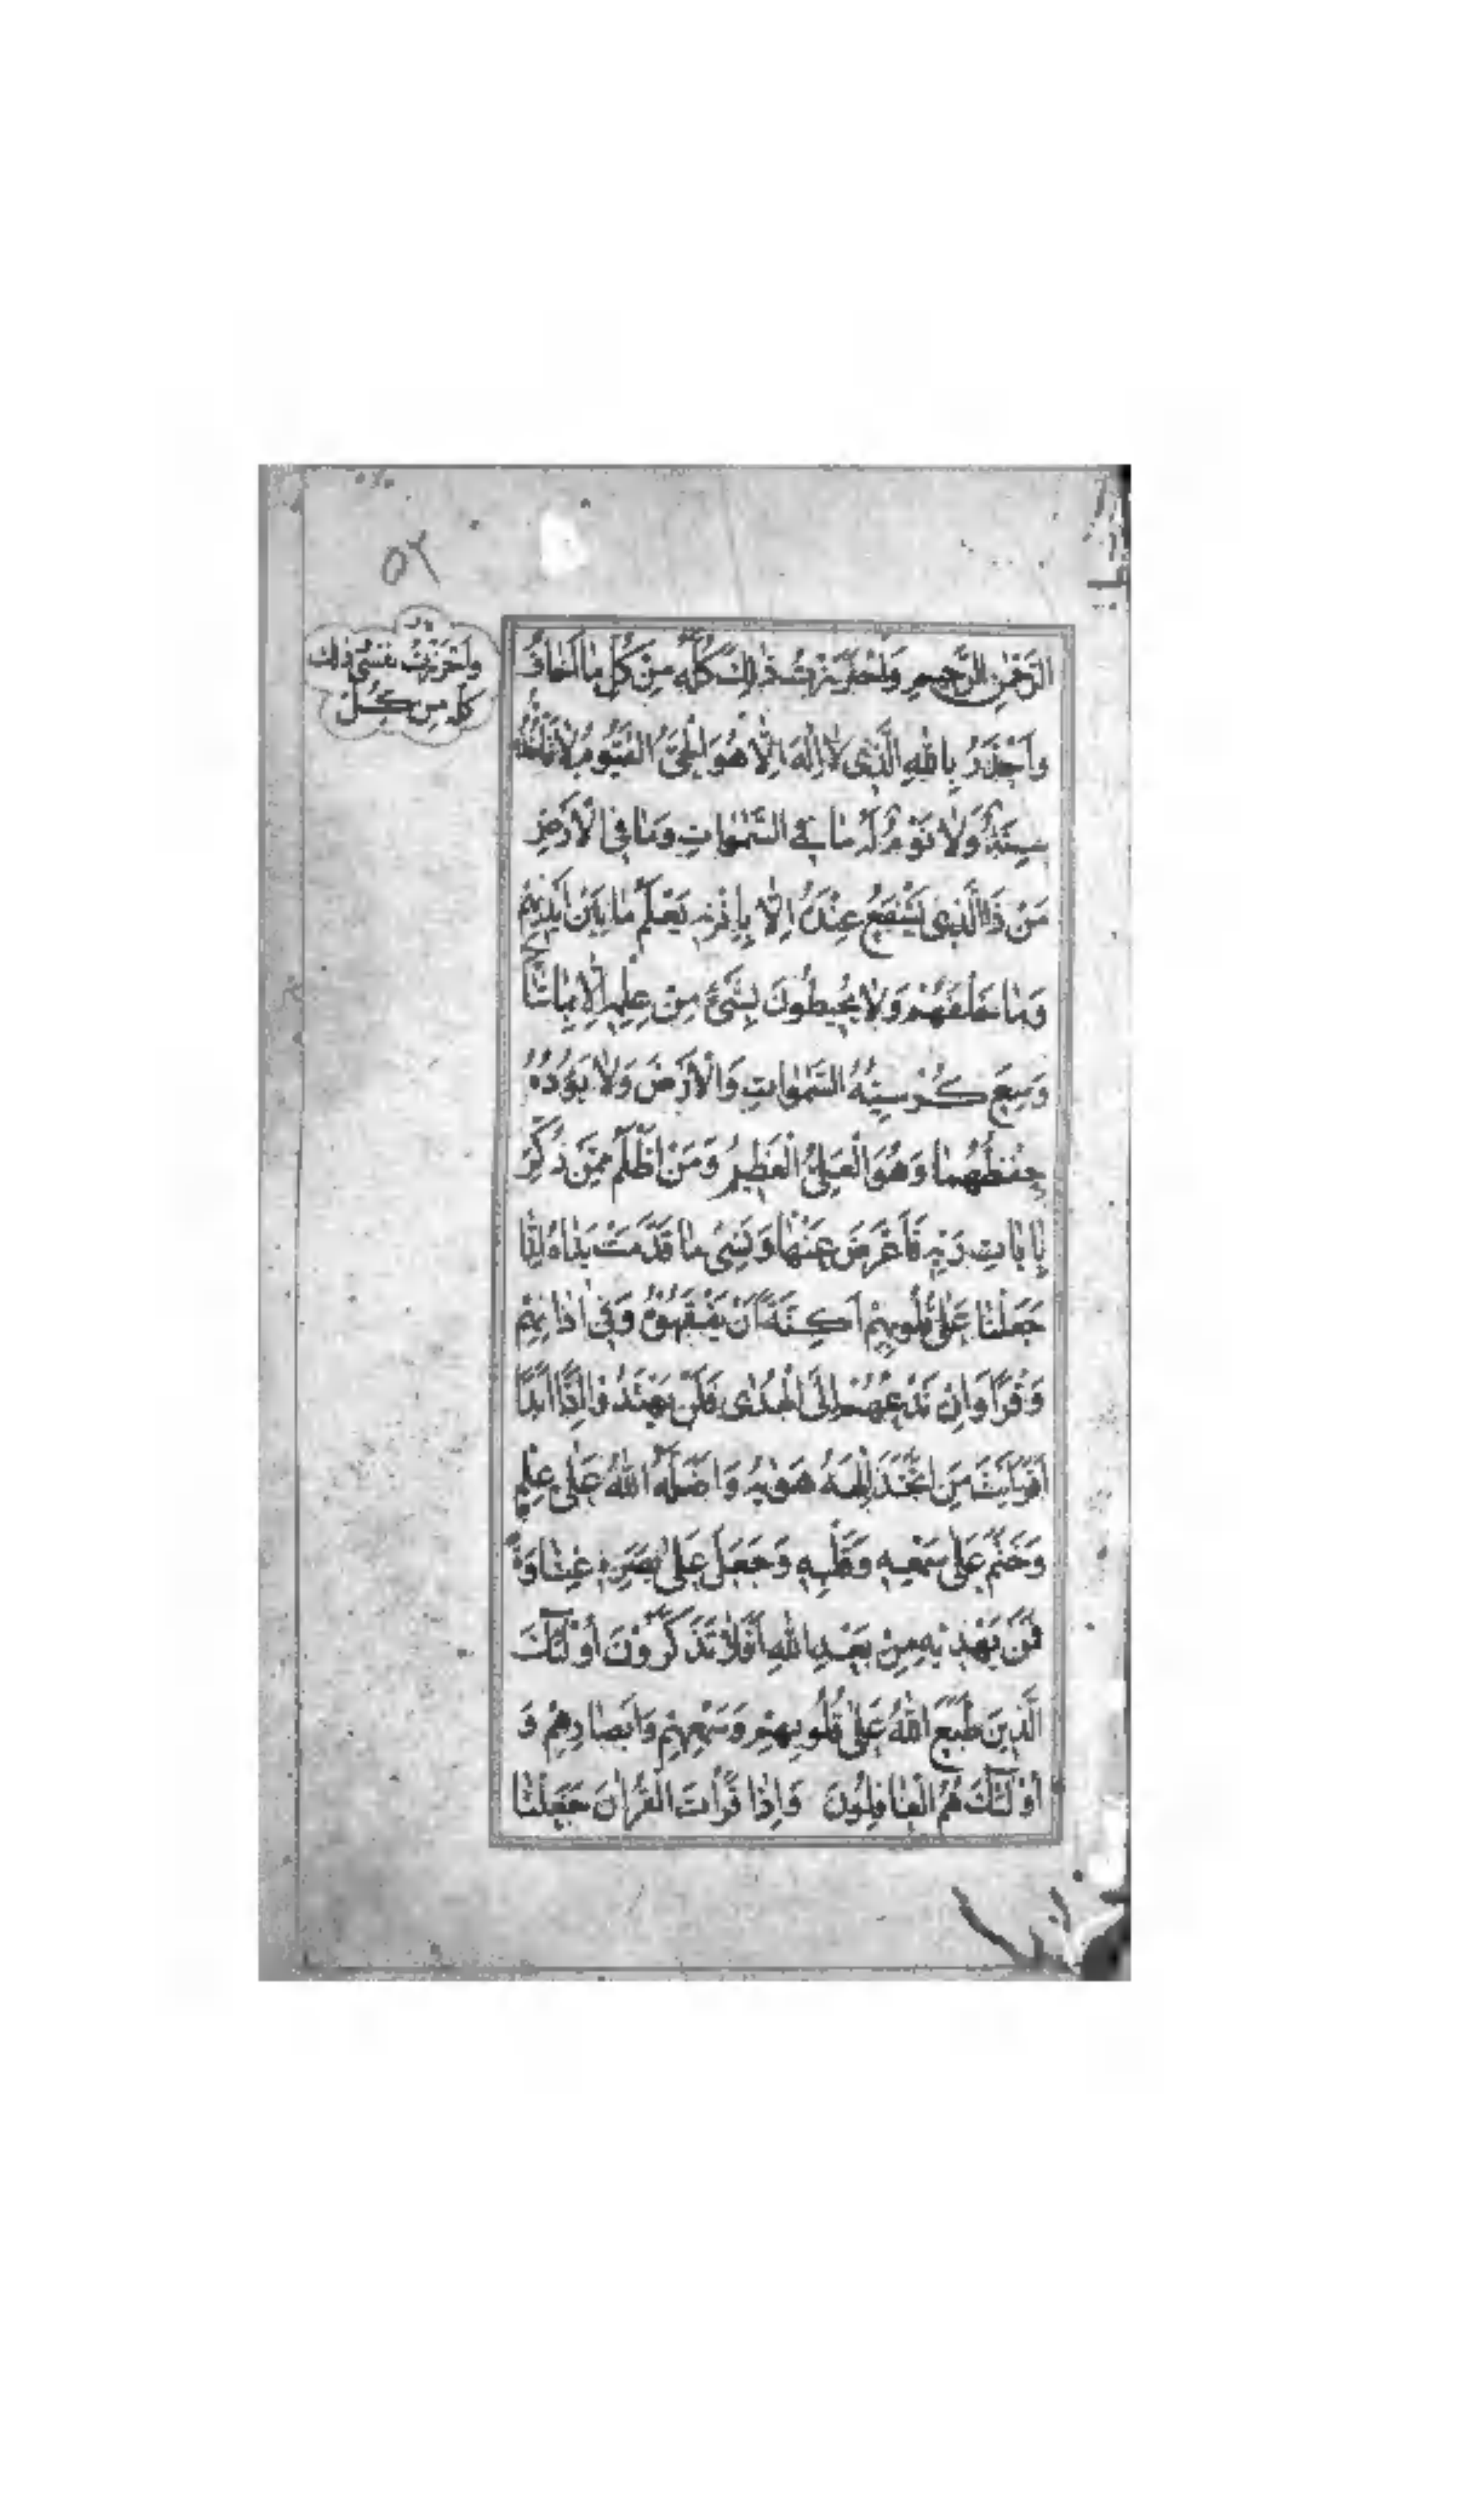 ٥٢
وَاَحْرَزْتُ نَفْسِی ذٰلِكَ
كُلَّهُ مِنْ كُلِّ
الرَّحْمٰنِ الرَّحِیمِ وَاحْتَرَزْتُ ذٰلِكَ كُلَّهُ مِنْ كُلِّ مٰا اَخٰافُ
وَاَحْذَرُ بِاللّٰهِ الَّذِی لٰا اِلٰهَ اِلّٰا هُوَ الْحَیُّ الْقَیُّومُ لٰا تَأْخُذُهُ
سِنَةٌ وَلٰا نَوْمٌ لَهُ مٰا فِی السَّمٰوٰاتِ وَمٰا فِی الْاَرْضِ
مَنْ ذَا الَّذِی یَشْفَعُ عِنْدَهُ اِلّٰا بِاِذْنِهِ یَعْلَمُ مٰا بَیْنَ اَیْدِیهِمْ
وَمٰا خَلْفَهُمْ وَلٰا یُحِیطُونَ بِشَیْءٍ مِنْ عِلْمِهِ اِلّٰا بِمٰا شٰاءَ
وَسِعَ كُرْسِیُّهُ السَّمٰوٰاتِ وَالْاَرْضَ وَلٰا یَؤُدُهُ
حِفْظُهُمٰا وَهُوَ الْعَلِیُّ الْعَظِیمُ وَمَنْ اَظْلَمُ مِمَّنْ ذُكِّرَ
بِاٰیٰاتِ رَبِّهِ فَاَعْرَضَ عَنْهٰا وَنَسِیَ مٰا قَدَّمَتْ یَدٰاهُ اِنّٰا
جَعَلْنٰا عَلٰی قُلُوبِهِمْ اَكِنَّةً اَنْ یَفْقَهُوهُ وَفِی اٰذٰانِهِمْ
وَقْرًا وَاِنْ تَدْعُهُمْ اِلَی الْهُدٰی فَلَنْ یَهْتَدُوا اِذًا اَبَدًا
اَفَرَاَیْتَ مَنِ اتَّخَذَ اِلٰهَهُ هَوٰیهُ وَاَضَلَّهُ اللّٰهُ عَلٰی عِلْمٍ
وَخَتَمَ عَلٰی سَمْعِهِ وَقَلْبِهِ وَجَعَلَ عَلٰی بَصَرِهِ غِشٰاوَةً
فَمَنْ یَهْدِیهِ مِنْ بَعْدِ اللّٰهِ اَفَلٰا تَذَكَّرُونَ اُوْلٰئِكَ
الَّذِینَ طَبَعَ اللّٰهُ عَلٰی قُلُوبِهِمْ وَسَمْعِهِمْ وَاَبْصٰارِهِمْ وَ
اُوْلٰئِكَ هُمُ الْغٰافِلُونَ وَاِذٰا قَرَأْتَ الْقُرْاٰنَ جَعَلْنٰا